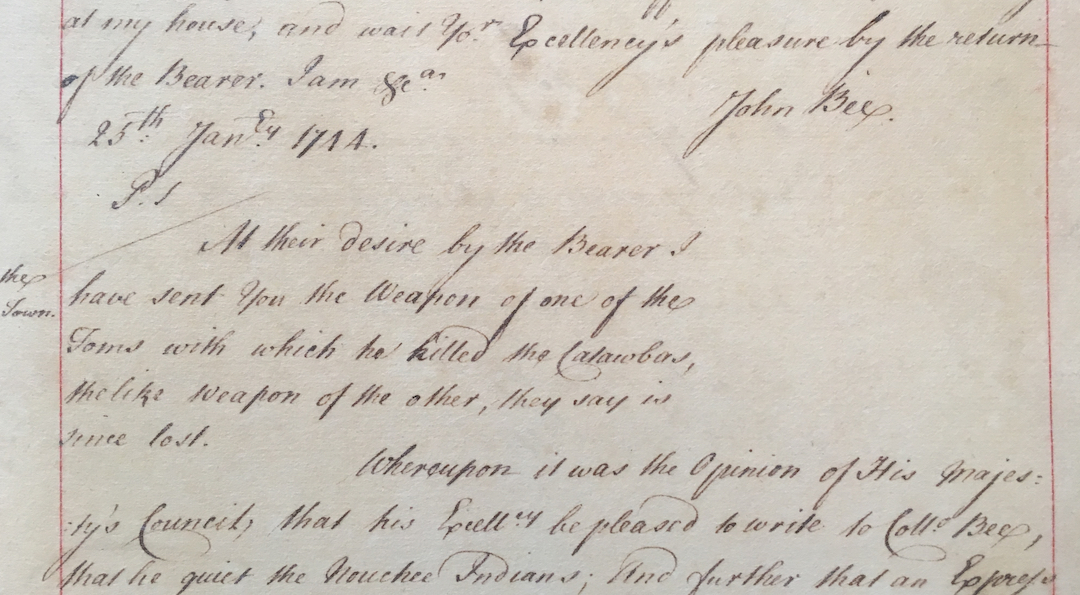 at my house, and wait Yo.r Excellency's pleasure by the return
of the Bearer. I am &c.a
John Bee.
25th. Jan.ry 1744.
P. S
At their desire by the Bearer I
the
Town.
have sent You the Weapon of one of the
Toms with which he killed the Catawbas,
the like Weapon of the other, they say is
since lost.
Whereupon it was the Opinion of His Majes:
:ty's Council, that his Excell.cy be pleased to write to Coll.o Bee,
that he quiet the Nouchee Indians; And further that an Express